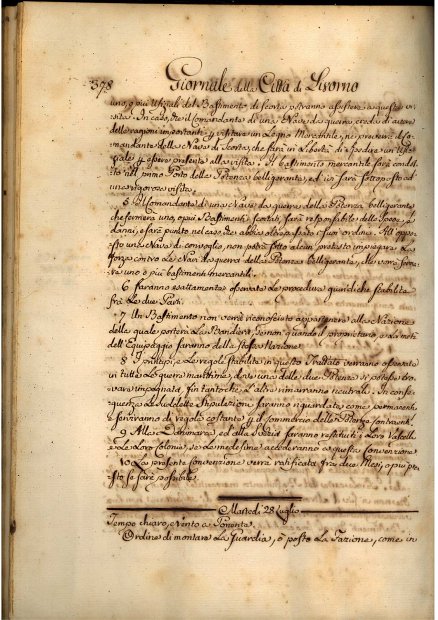 378 Giornale della Città di Livorno
uno, o più Ufiziali del Bastimento di scorta potranno assistere a questa vi-
sita. In caso, che il Comandante di una Nave da guerra creda di avere
delle ragioni importanti di visitare un Legno Mercantile, ne preverrà il Co-
mandante della Nave di Scorta, che sarà in libertà di spedire un Ufi-
ziale ad essere presente alla visita. Il bastimento mercantile sarà condot-
to nell' Porto della Potenza belligerante, ed ivi sarà sottoposto ad
una rigorosa visita.
5 Il Comandante di una Nave da guerra della Potenza belligerante
che fermerà uno, o più Bastimenti scortati, sarà responsabile delle spese, e
danni, e sarà punito nel caso che abbia oltrepassati i suoi ordini. All'oppo-
sto una Nave di convoglio, non potrà sotto alcun pretesto impiegare la
forza contro le Navi da guerra della Potenza belligerante, che vorrà ferma-
re uno o più bastimenti mercantili.
6 Saranno esattamente osservate le procedure giuridiche stabilite
frà le due Parti.
7 Un Bastimento non verrà riconosciuto appartenere alla Nazione
della quale porterà la Bandiera, se non quando il proprietario, e la metà
dell' Equipaggio saranno della stessa Nazione.
8 I principj, e le regole stabilite in questo Trattato verranno osservate
in tutte le guerre marittime, dove una delle due Potenze si potesse tro-
vare impegnata, fin tanto che l' altra rimarranno neutrali. In conse-
guenza le suddette Stipulazioni saranno riguardate come permanenti,
e serviranno di regola costante per il commercio delle Parti contraenti.
9 Alla Danimarca, ed alla Svezia saranno restituiti i Loro Vascelli,
e le Loro Colonie, se le medesime accederanno a questa Convenzione
10 La presente Convenzione verrà ratificata fra due Mesi, o più pre-
sto se sarà possibile.
Martedì 28 Luglio
Tempo chiaro, e Vento a Ponente.
Ordine di montare la Guardia, e posto la Fazione, come in